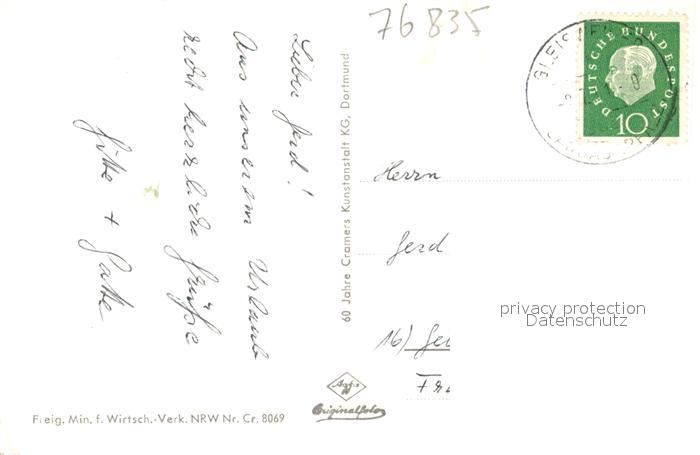 76835
Lieber Gerd!
Aus unserem Urlaub
recht herzliche Grüße
Gitte + Gatte
60 Jahre Cramers Kunstanstalt KG, Dortmund
DEUTSCHE BUNDESPOST
10
Herrn
Gerd
16)
privacy protection
Datenschutz
Agfa
Originalfoto
Freig. Min. f. Wirtsch.-Verk. NRW Nr. Cr. 8069